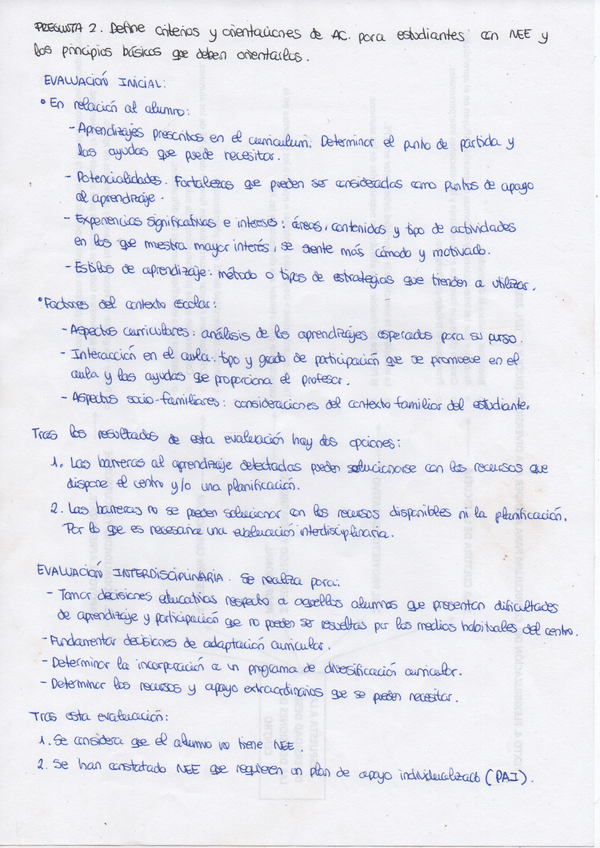 PREGUNTA 2. Define criterios y orientaciones de AC. para estudiantes con NEE y
los principios básicos que deben orientarlos.
EVALUACIÓN INICIAL:
• En relación al alumno:
- Aprendizajes prescritos en el curriculum. Determinar el punto de partida y
las ayudas que puede necesitar.
- Potencialidades. Fortalezas que pueden ser consideradas como puntos de apoyo
al aprendizaje.
- Experiencias significativas e intereses: áreas, contenidos y tipo de actividades
en los que muestra mayor interés, se siente más cómodo y motivado.
- Estilos de aprendizaje: método o tipos de estrategias que tienden a utilizar.
• Factores del contexto escolar:
- Aspectos curriculares: análisis de los aprendizajes esperados para su curso.
- Interacción en el aula: tipo y grado de participación que se promueve en el
aula y las ayudas que proporciona el profesor.
- Aspectos socio-familiares: consideraciones del contexto familiar del estudiante.
Tras los resultados de esta evaluación hay dos opciones:
1. Las barreras al aprendizaje detectadas pueden solucionarse con los recursos que
dispone el centro y/o una planificación.
2. Las barreras no se pueden solucionar con los recursos disponibles ni la planificación.
Por lo que es necesaria una evaluación interdisciplinaria.
EVALUACIÓN INTERDISCIPLINARIA. Se realiza para:
- Tomar decisiones educativas respecto a aquellos alumnos que presentan dificultades
de aprendizaje y participación que no pueden ser resueltas por los medios habituales del centro.
- Fundamentar decisiones de adaptación curricular.
- Determinar la incorporación a un programa de diversificación curricular.
- Determinar los recursos y apoyo extraordinarios que se pueden necesitar.
Tras esta evaluación:
1. Se considera que el alumno no tiene NEE.
2. Se han constatado NEE que requieren un plan de apoyo individualizado (PAI).